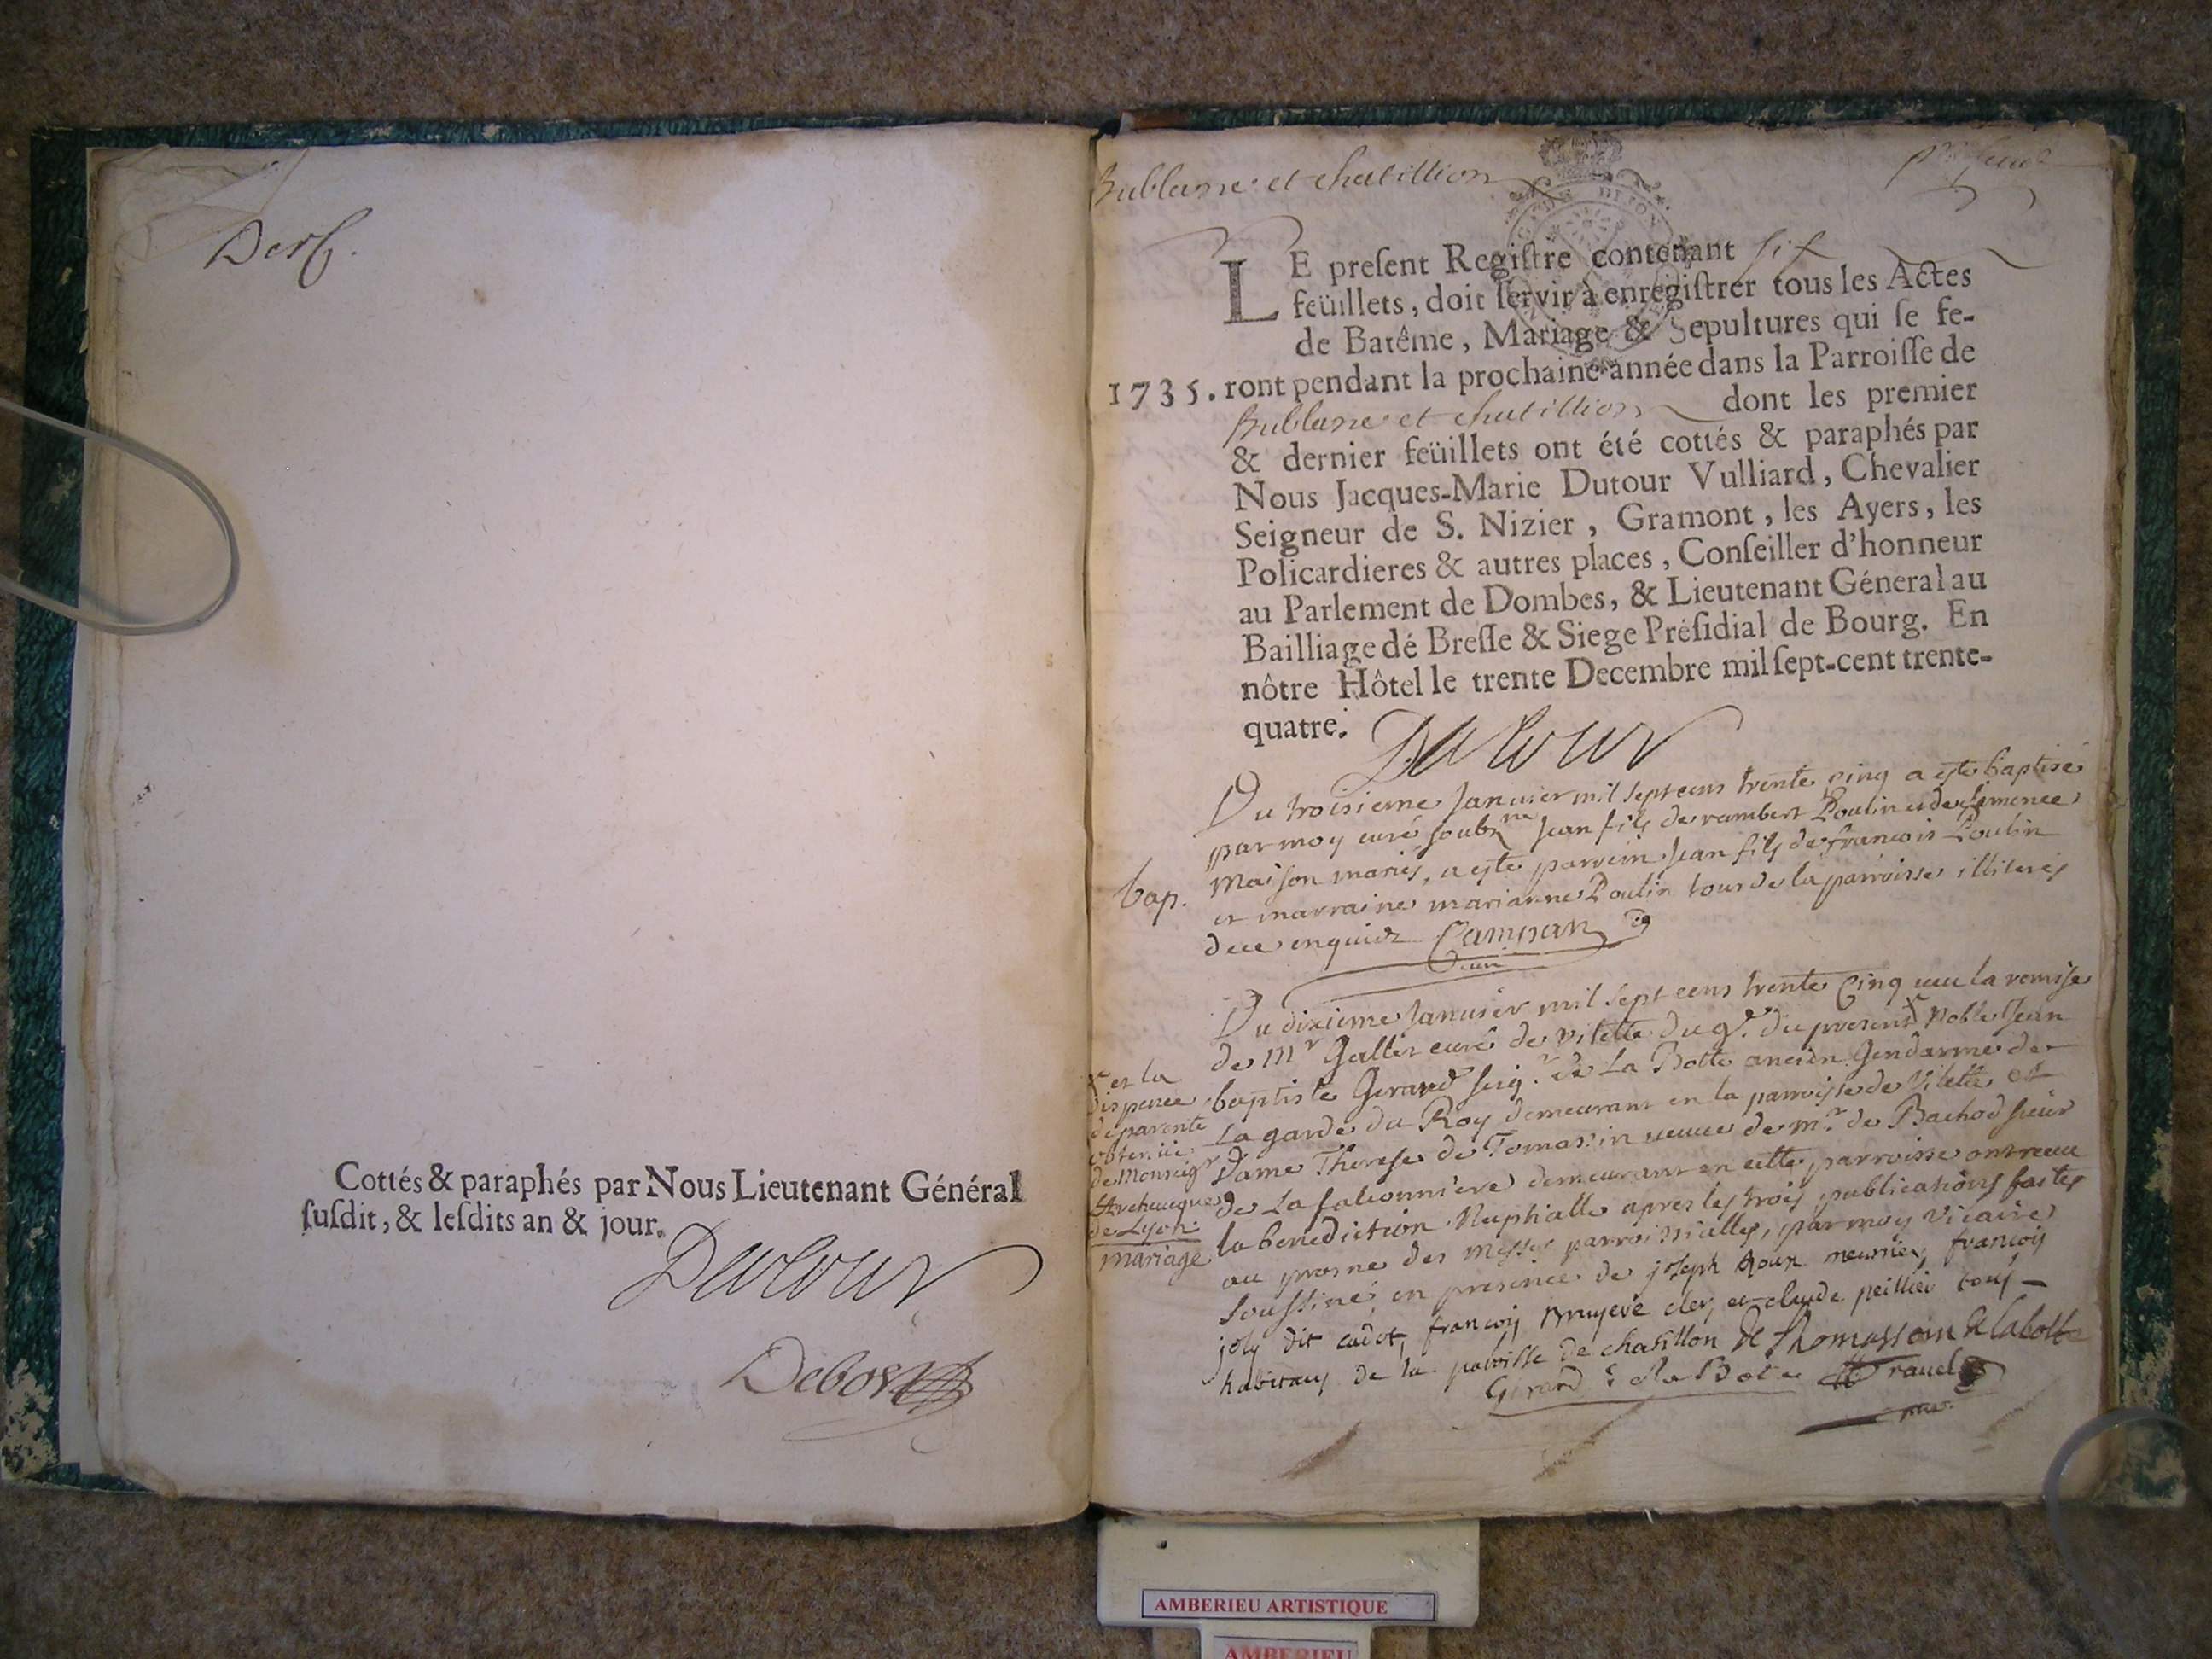 Cottés & paraphés par Nous Lieutenant Général
ſuſdit, & leſdits an & jour.
Dutour
Bublane et chatillion
LE preſent Regiſtre contenant six
feüillets, doit ſervir à enregiſtrer tous les Actes
de Batême, Mariage & Sepultures qui ſe fe-
1735. ront pendant la prochaine année dans la Parroiſſe de
Bublane et chatillion dont les premier
& dernier feüillets ont été cottés & paraphés par
Nous Jacques-Marie Dutour Vulliard, Chevalier
Seigneur de S. Nizier, Gramont, les Ayers, les
Policardieres & autres places, Conſeiller d'honneur
au Parlement de Dombes, & Lieutenant Géneral au
Bailliage dé Breſſe & Siege Préſidial de Bourg. En
nôtre Hôtel le trente Decembre mil ſept-cent trente-
quatre.
Dutour
Du troisieme Januier mil sept cens trente cinq a esté baptisé
par moy curé soubzne Jean fils de rambert Poulin et de
Maison mariés, a esté parrein Jean fils de francois Poulin
bap.
et marraine marianne Poulin tous de la parroisse illiterés
de ce enquis Campan
Du dixieme Januier mil sept cens trente Cinq ueu la remise
de Mr curé de Vilette du 9e. du present x Noble Jean
baptiste Gerard seigr de La Botte ancien Gendarme de
La garde du Roy demeurant en la parroisse de Vilette et
Dame Therese de Tomassin ueuue de mr. de Bachod sieur
de La falconniere demeurant en cette parroisse ont receu
la benediction Nuptialle apres les trois publications faites
au prosne des Messes parroissialles, par moy vicaire
soussiné en presence de joseph Roux meunier, françois
joly dit cadet, francois Bruyere cler, et claude peillieu tous
habitans de la paroisse de chatillon De Thomassin De labotte
Gerard De La Bote
x et la
dispence
de parenté
obtenüe
de Monseigr
L'Archeueque
de Lyon.
mariage
AMBERIEU ARTISTIQUE
AMBERIEU